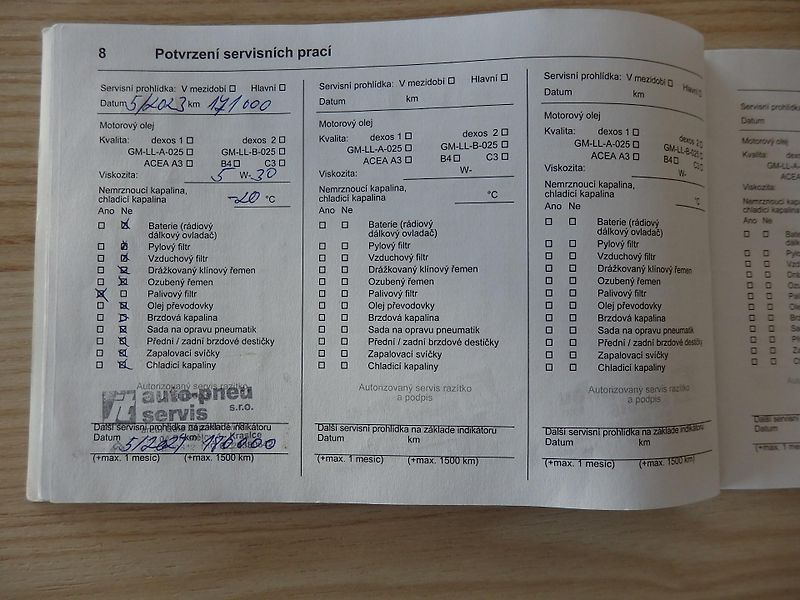 8 Potvrzení servisních prací
Servisní prohlídka: V mezidobí Hlavní
Datum 5/2023 km 171000
Motorový olej
Kvalita: dexos 1 dexos 2
GM-LL-A-025 GM-LL-B-025
ACEA A3 B4 C3
Viskozita: 5 W-30
Nemrznoucí kapalina,
chladicí kapalina -20 °C
Ano Ne
Baterie (rádiový
dálkový ovladač)
Pylový filtr
Vzduchový filtr
Drážkovaný klínový řemen
Ozubený řemen
Palivový filtr
Olej převodovky
Brzdová kapalina
Sada na opravu pneumatik
Přední / zadní brzdové destičky
Zapalovací svíčky
Chladicí kapalina
Autorizovaný servis razítko
auto-pneu
servis s.r.o.
Další servisní prohlídka na základě indikátoru
Datum 5/2024 km
(+max. 1 měsíc) (+max. 1500 km)
Servisní prohlídka: V mezidobí Hlavní
Datum km
Motorový olej
Kvalita: dexos 1 dexos 2
GM-LL-A-025 GM-LL-B-025
ACEA A3 B4 C3
Viskozita: W-
Nemrznoucí kapalina,
chladicí kapalina °C
Ano Ne
Baterie (rádiový
dálkový ovladač)
Pylový filtr
Vzduchový filtr
Drážkovaný klínový řemen
Ozubený řemen
Palivový filtr
Olej převodovky
Brzdová kapalina
Sada na opravu pneumatik
Přední / zadní brzdové destičky
Zapalovací svíčky
Chladicí kapalina
Autorizovaný servis razítko
a podpis
Další servisní prohlídka na základě indikátoru
Datum km
(+max. 1 měsíc) (+max. 1500 km)
Servisní prohlídka: V mezidobí Hlavní
Datum km
Motorový olej
Kvalita: dexos 1 dexos 2
GM-LL-A-025 GM-LL-B-025
ACEA A3 B4 C3
Viskozita: W-
Nemrznoucí kapalina,
chladicí kapalina °C
Ano Ne
Baterie (rádiový
dálkový ovladač)
Pylový filtr
Vzduchový filtr
Drážkovaný klínový řemen
Ozubený řemen
Palivový filtr
Olej převodovky
Brzdová kapalina
Sada na opravu pneumatik
Přední / zadní brzdové destičky
Zapalovací svíčky
Chladicí kapalina
Autorizovaný servis razítko
a podpis
Další servisní prohlídka na základě indikátoru
Datum km
(+max. 1 měsíc) (+max. 1500 km)
Servisní prohlídka:
Datum
Motorový olej
Kvalita: dexos
GM-LL-A-025
ACEA
Viskozita:
Nemrznoucí
chladicí kapalina
Ano Ne
Další servisní
Datum
(+max. 1